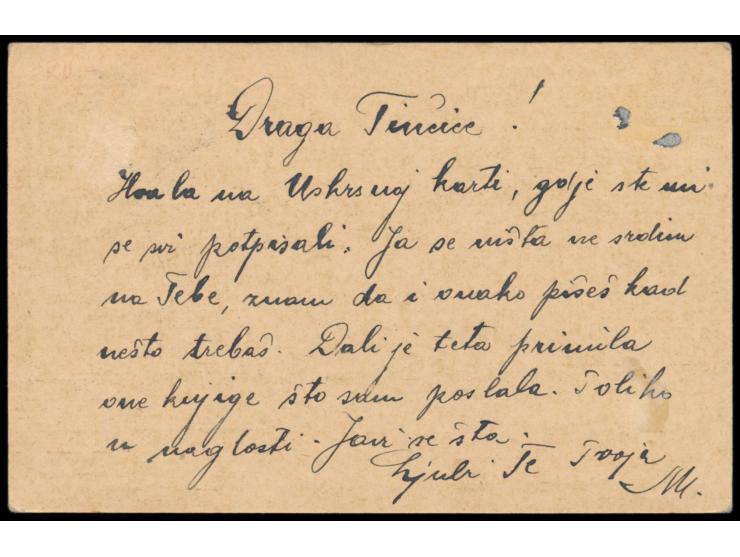 Draga Tinčice!
Hvala na Uskrsnoj karti, gdje ste mi
se svi potpisali. Ja se ništa ne srdim
na Tebe, znam da i onako pišeš kad
nešto trebaš. Dali je teta primila
one knjige što sam poslala. Toliko
u naglosti. Javi se šta.
Ljubi Te Tvoja
M.